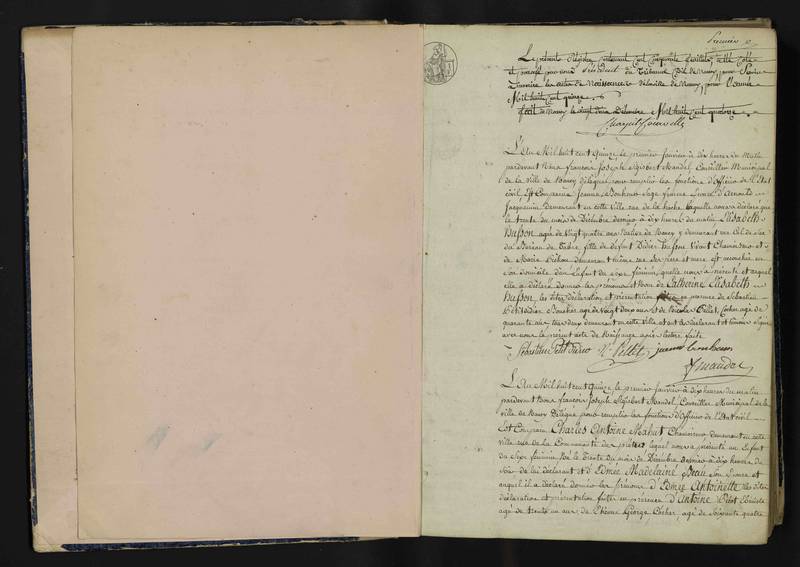 Premier
Le présent Registre contenant cent cinquante feuillets, a été côté
et paraphé par nous Président du Tribunal Civil de Nancy, pour Servir
à inscrire les actes de Naissances de la ville de Nancy, pour l'année
Mil huit cent quinze.
fait à Nancy le vingt Décembre Mil huit cent quatorze.
L'An Mil huit cent Quinze, le premier Janvier à dix heures du Matin
pardevant Nous françois Joseph Sigisbert Mandel, Conseiller Municipal
de la ville de Nancy délégué pour remplir les fonctions d'Officier de l'Etat
civil, Est Comparue Jeanne Bonheur Sage femme
demeurant en cette ville rue de la hache laquelle nous a déclaré que
le trente du mois de Décembre dernier à dix heures du matin Elisabeth
Husson agée de Vingt quatre ans Native de Nancy y demeurant
du Bureau de Tabac, fille de defunt Didier Husson Vivant Chamoiseur et
de Marie demeurant même rue Ses père et mère est accouchée en
son domicile d'un Enfant du Sexe féminin, qu'elle nous a présenté et auquel
elle a déclaré donner les prénoms et Nom de Catherine Elisabeth
Husson, les dites déclaration et présentation faites en présence de Sébastien
Petitdidier Boucher agé de Vingt deux ans et de Nicolas Pillet, Cocher agé de
quarante ans tous deux demeurant en cette ville et ont les déclarant et témoins Signé
avec nous le présent acte de Naissance après lecture faite
Sebastien Petit Didier N. Pillet jeanne bonheur
Mandel
L'An Mil huit cent Quinze, le premier Janvier à dix heures du matin
pardevant Nous françois Joseph Sigisbert Mandel, Conseiller Municipal de la
ville de Nancy Délégué pour remplir les fonctions d'Officier de l'Etat civil
Est Comparu Charles Antoine Mahut Chamoiseur demeurant en cette
ville rue de la Communauté des prêtres lequel nous a présenté un Enfant
du Sexe féminin Né le Trente du mois de Décembre dernier à dix heures du
Soir de lui déclarant et d'Edmée Madelaine Beau Son Epouse et
auquel il a déclaré donner les prénoms d'Edmée Antoinette les dites
déclaration et présentation faites en présence d'Antoine Petot
agé de trente un ans de Etienne George, Cocher, agé de soixante quatre